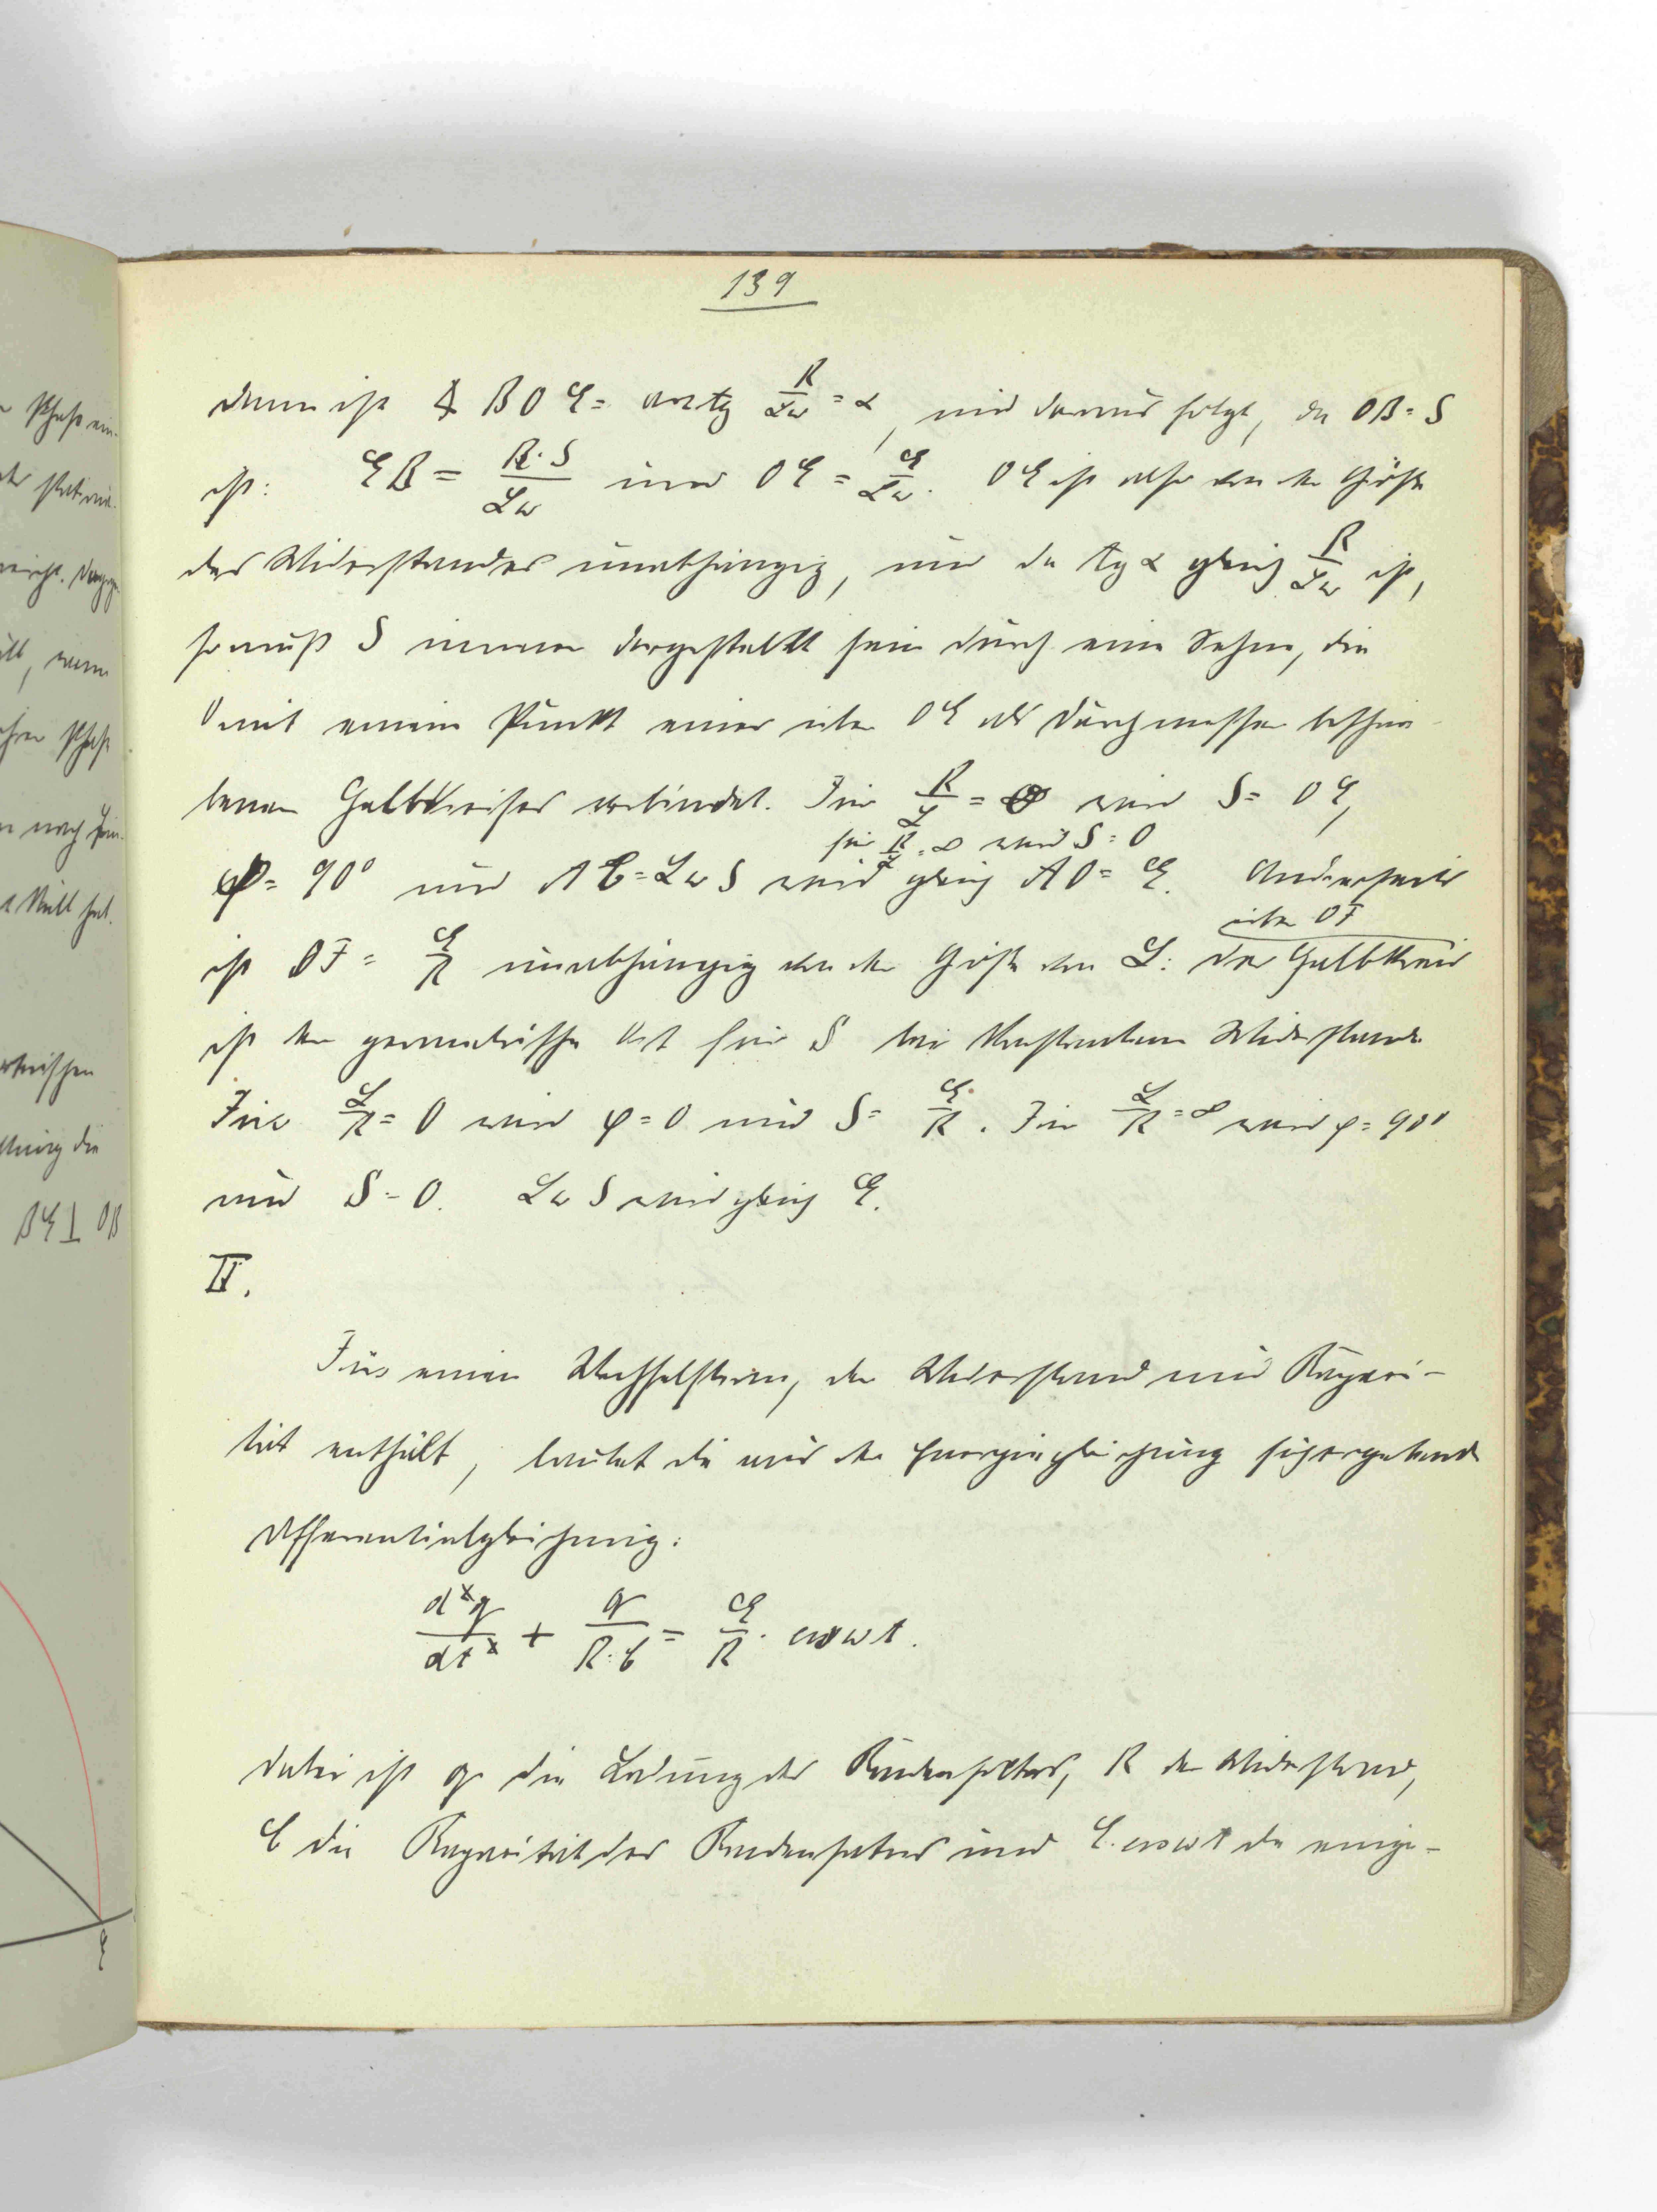 139
dann ist ∢ BOE = arctg R/Lω = α, und daraus folgt, da OB = S
ist: EB = R·S/Lω und OE = E/Lω. OE ist also von der Größe
des Widerstandes unabhängig, und da tg α gleich R/Lω ist,
so muß S immer dargestellt sein durch eine Sehne, die
O mit einem Punkt eines über OE als Durchmesser beschrie-
benen Halbkreises verbindet. Für R/L = 0 wird S = OE,
für R/L = ∞ wird S = 0
φ = 90° und AC = LωS wird gleich AO = E. Anderseits
über OF
ist OF = E/R unabhängig von der Größe von L: der Halbkreis
ist der geometrische Ort für S bei konstantem Widerstande
Für L/R = 0 wird φ = 0 und S = E/R. Für L/R = ∞ wird φ = 90°
und S = 0. LωS wird gleich E.
II.
Für einen Wechselstrom, der Widerstand und Kapazi-
tät enthält, lautet die aus der Energiegleichung sich ergebende
Differentialgleichung:
dq/dt + q/R·C = E/R · cos ωt.
dabei ist q die Ladung des Kondensators, R der Widerstand,
C die Kapazität des Kondensators und E·cos ωt die einge-